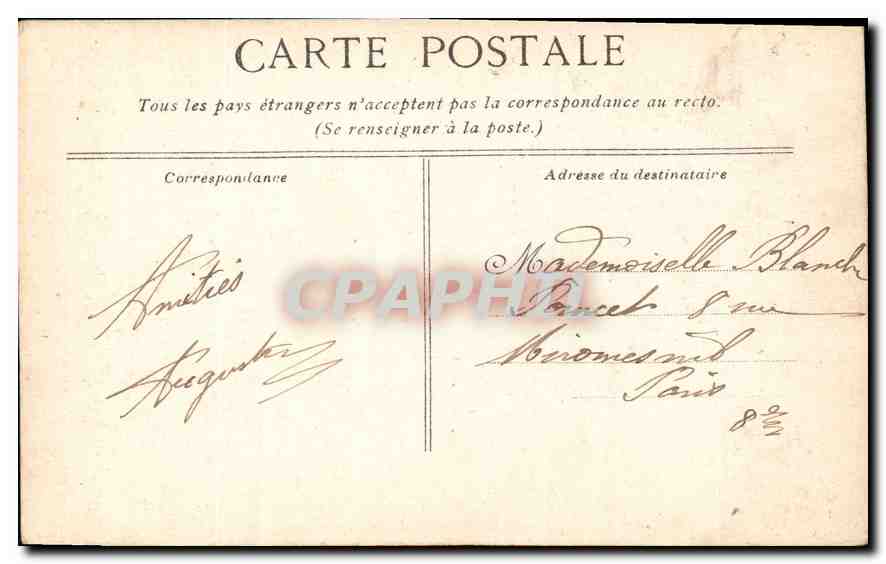 CARTE POSTALE
Tous les pays étrangers n'acceptent pas la correspondance au recto.
(Se renseigner à la poste.)
Correspondance
Amitiés
Auguste
Adresse du destinataire
Mademoiselle Blanche
Poncet 8 rue
Miromesnil
Paris
8e
CPAPHIL